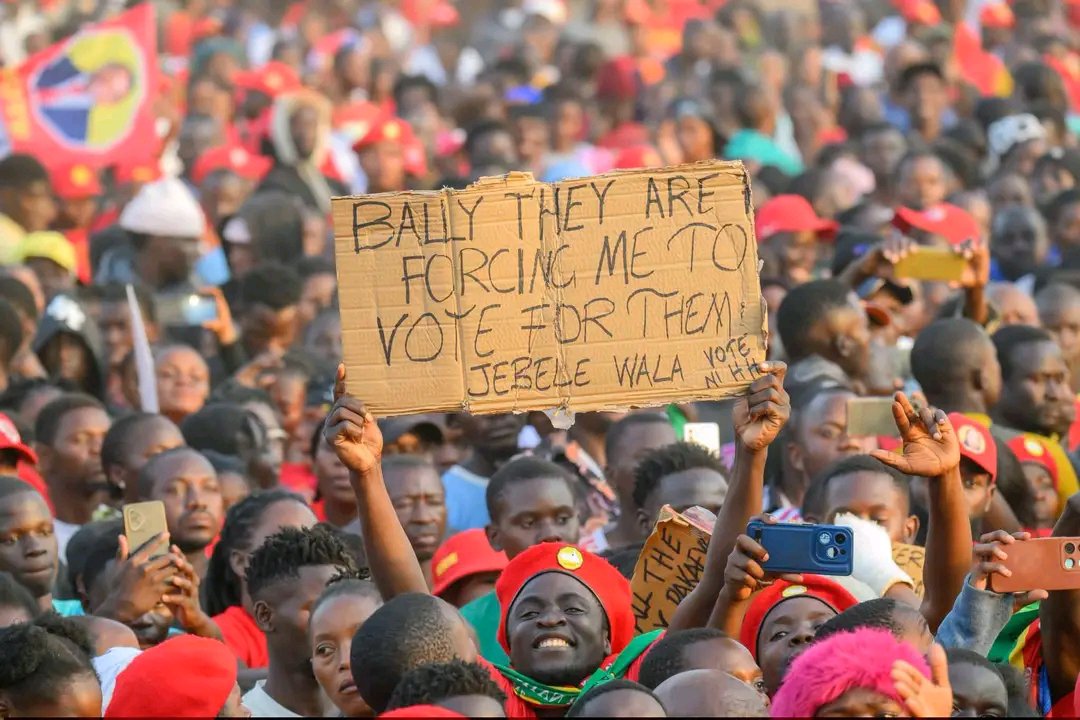 BALLY THEY ARE
FORCING ME TO
VOTE FOR THEM!
JEBELE WALA
VOTE
NI HH